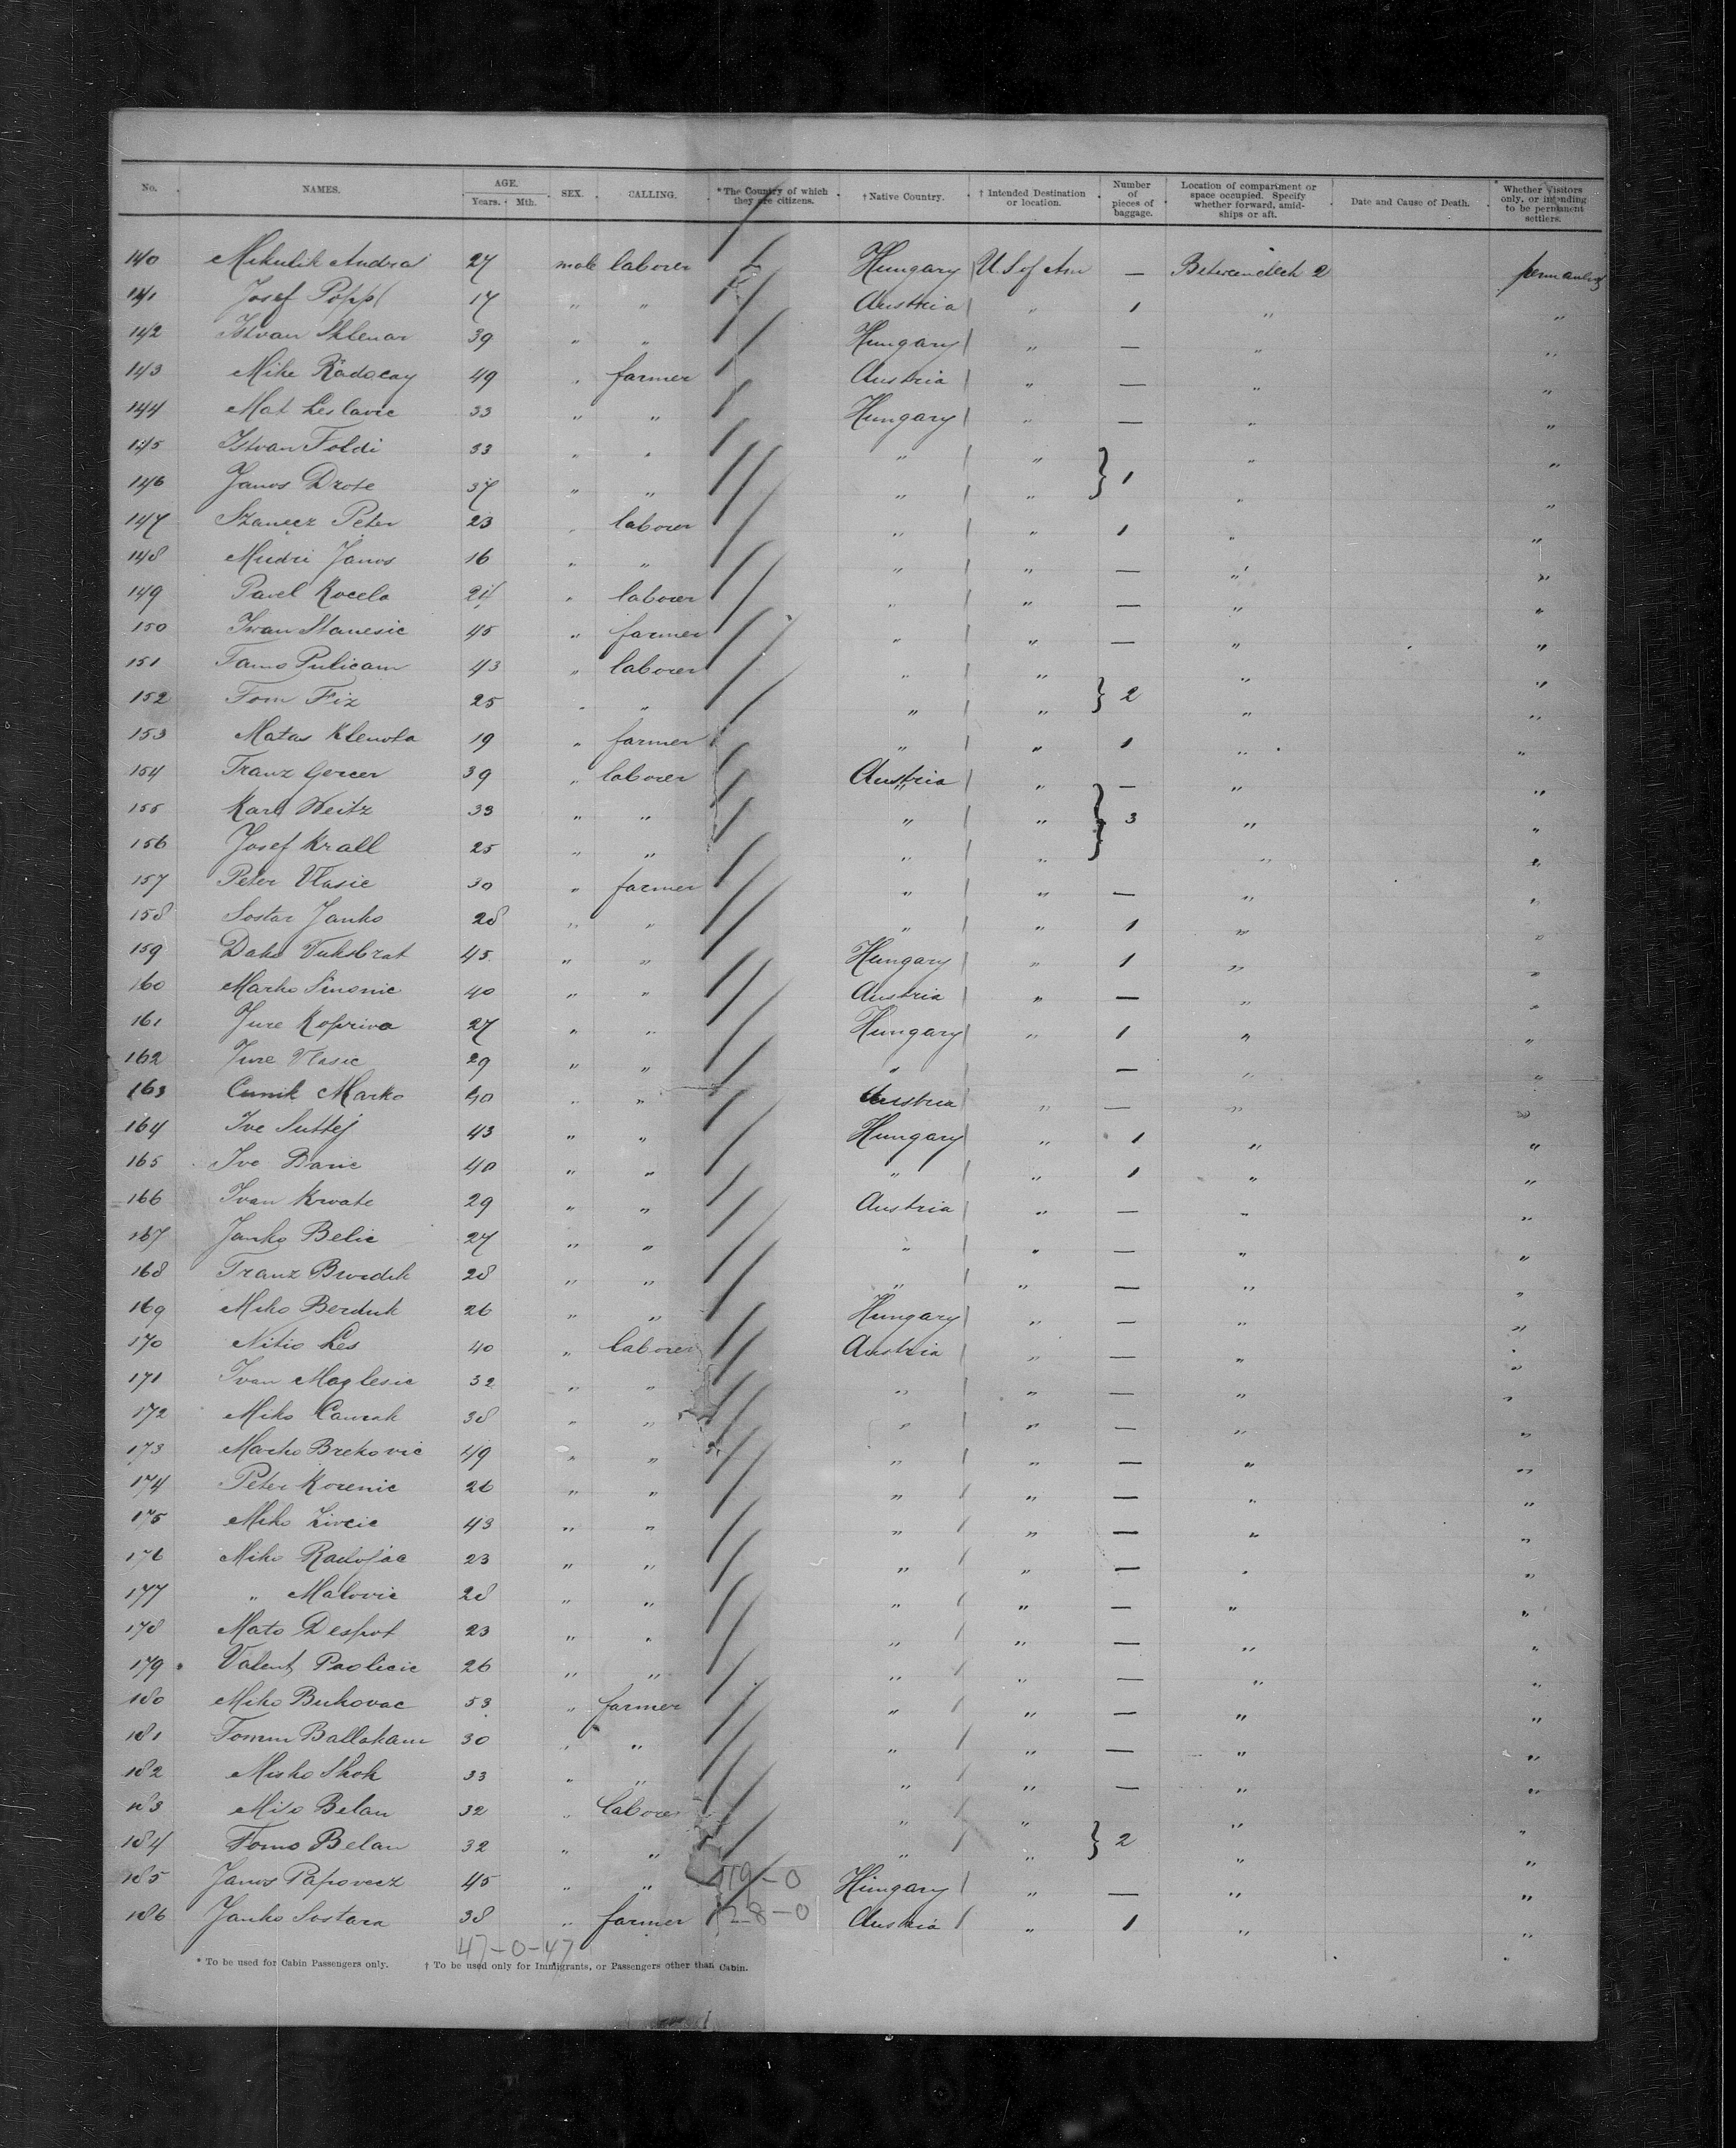 No. NAMES. AGE. Years. Mth. SEX. CALLING. *The Country of which they are citizens. †Native Country. † Intended Destination or location. Number of pieces of baggage. Location of compartment or space occupied. Specify whether forward, amidships or aft. Date and Cause of Death. * Whether Visitors only, or intending to be permanent settlers.
140 Mikulik Andras 27 male laborer Hungary U S of Am — Betweendeck 2 permanent
141 Josef Poppl 17 " " Austria " 1 " "
142 Istvan Sklenar 39 " " Hungary " — " "
143 Mike Radocay 49 " farmer Austria " — " "
144 Mat Leslavic 33 " " Hungary " — " "
145 Istvan Foldi 33 " " " " } 1 " "
146 Janos Drote 37 " " " " " "
147 Szanecz Peter 23 " laborer " " 1 " "
148 Mudri Janos 16 " " " " — " "
149 Pavel Kocela 24 " laborer " " — " "
150 Iwan Stanesic 45 " farmer " " — " "
151 Tamo Pulicam 43 " laborer " " } 2 " "
152 Tom Fiz 25 " " " " " "
153 Matas Klemota 19 " farmer " " 1 " "
154 Franz Gercer 39 " laborer Austria " — " "
155 Karl Weitz 33 " " " " } 3 " "
156 Josef Krall 25 " " " " " "
157 Peter Vlasic 30 " farmer " " — " "
158 Sostar Janko 28 " " " " 1 " "
159 Dako Vuksbrat 45 " " Hungary " 1 " "
160 Marko Simonic 40 " " Austria " — " "
161 Jure Kopriva 27 " " Hungary " 1 " "
162 Jure Vlasic 29 " " " — " "
163 Cunik Marko 40 " " Austria " — " "
164 Ive Suttej 43 " " Hungary " 1 " "
165 Ivo Baric 40 " " " " 1 " "
166 Ivan Krvate 29 " " Austria " — " "
167 Janko Belic 27 " " " " — " "
168 Franz Brordik 28 " " " " — " "
169 Miko Berduk 26 " " Hungary " — " "
170 Nitio Les 40 " laborer Austria " — " "
171 Ivan Maglesic 32 " " " " — " "
172 Miko Caurak 38 " " " " — " "
173 Marko Brekovic 49 " " " " — " "
174 Peter Korenic 26 " " " " — " "
175 Miko Zivcic 43 " " " " — " "
176 Miko Radojac 23 " " " " — " "
177 " Malovic 28 " " " " — " "
178 Mato Despot 23 " " " " — " "
179 Valent Paolicic 26 " " " " — " "
180 Miko Bukovac 53 " farmer " " — " "
181 Tomm Ballakam 30 " " " " — " "
182 Misko Skok 33 " " " " — " "
183 Miso Belan 32 " laborer " " } 2 " "
184 Tomo Belan 32 " " " " " "
185 Janos Papovecz 45 " " 119-0 Hungary " — " "
186 Janko Sostara 38 " farmer 128-0 Austria " 1 " "
47-0-47
* To be used for Cabin Passengers only. † To be used only for Immigrants, or Passengers other than Cabin.